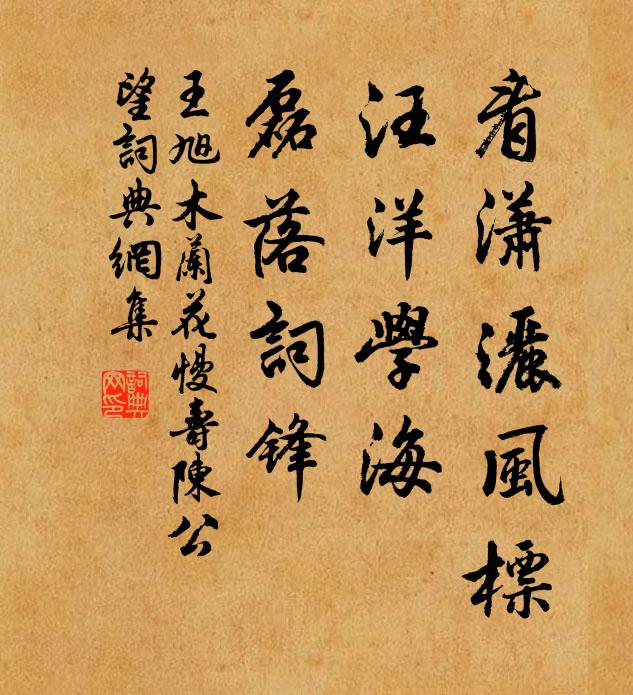 看瀟灑風標
汪洋學海
磊落詞鋒
王旭木蘭花慢壽陳公
望詞典網集
詞典
网印